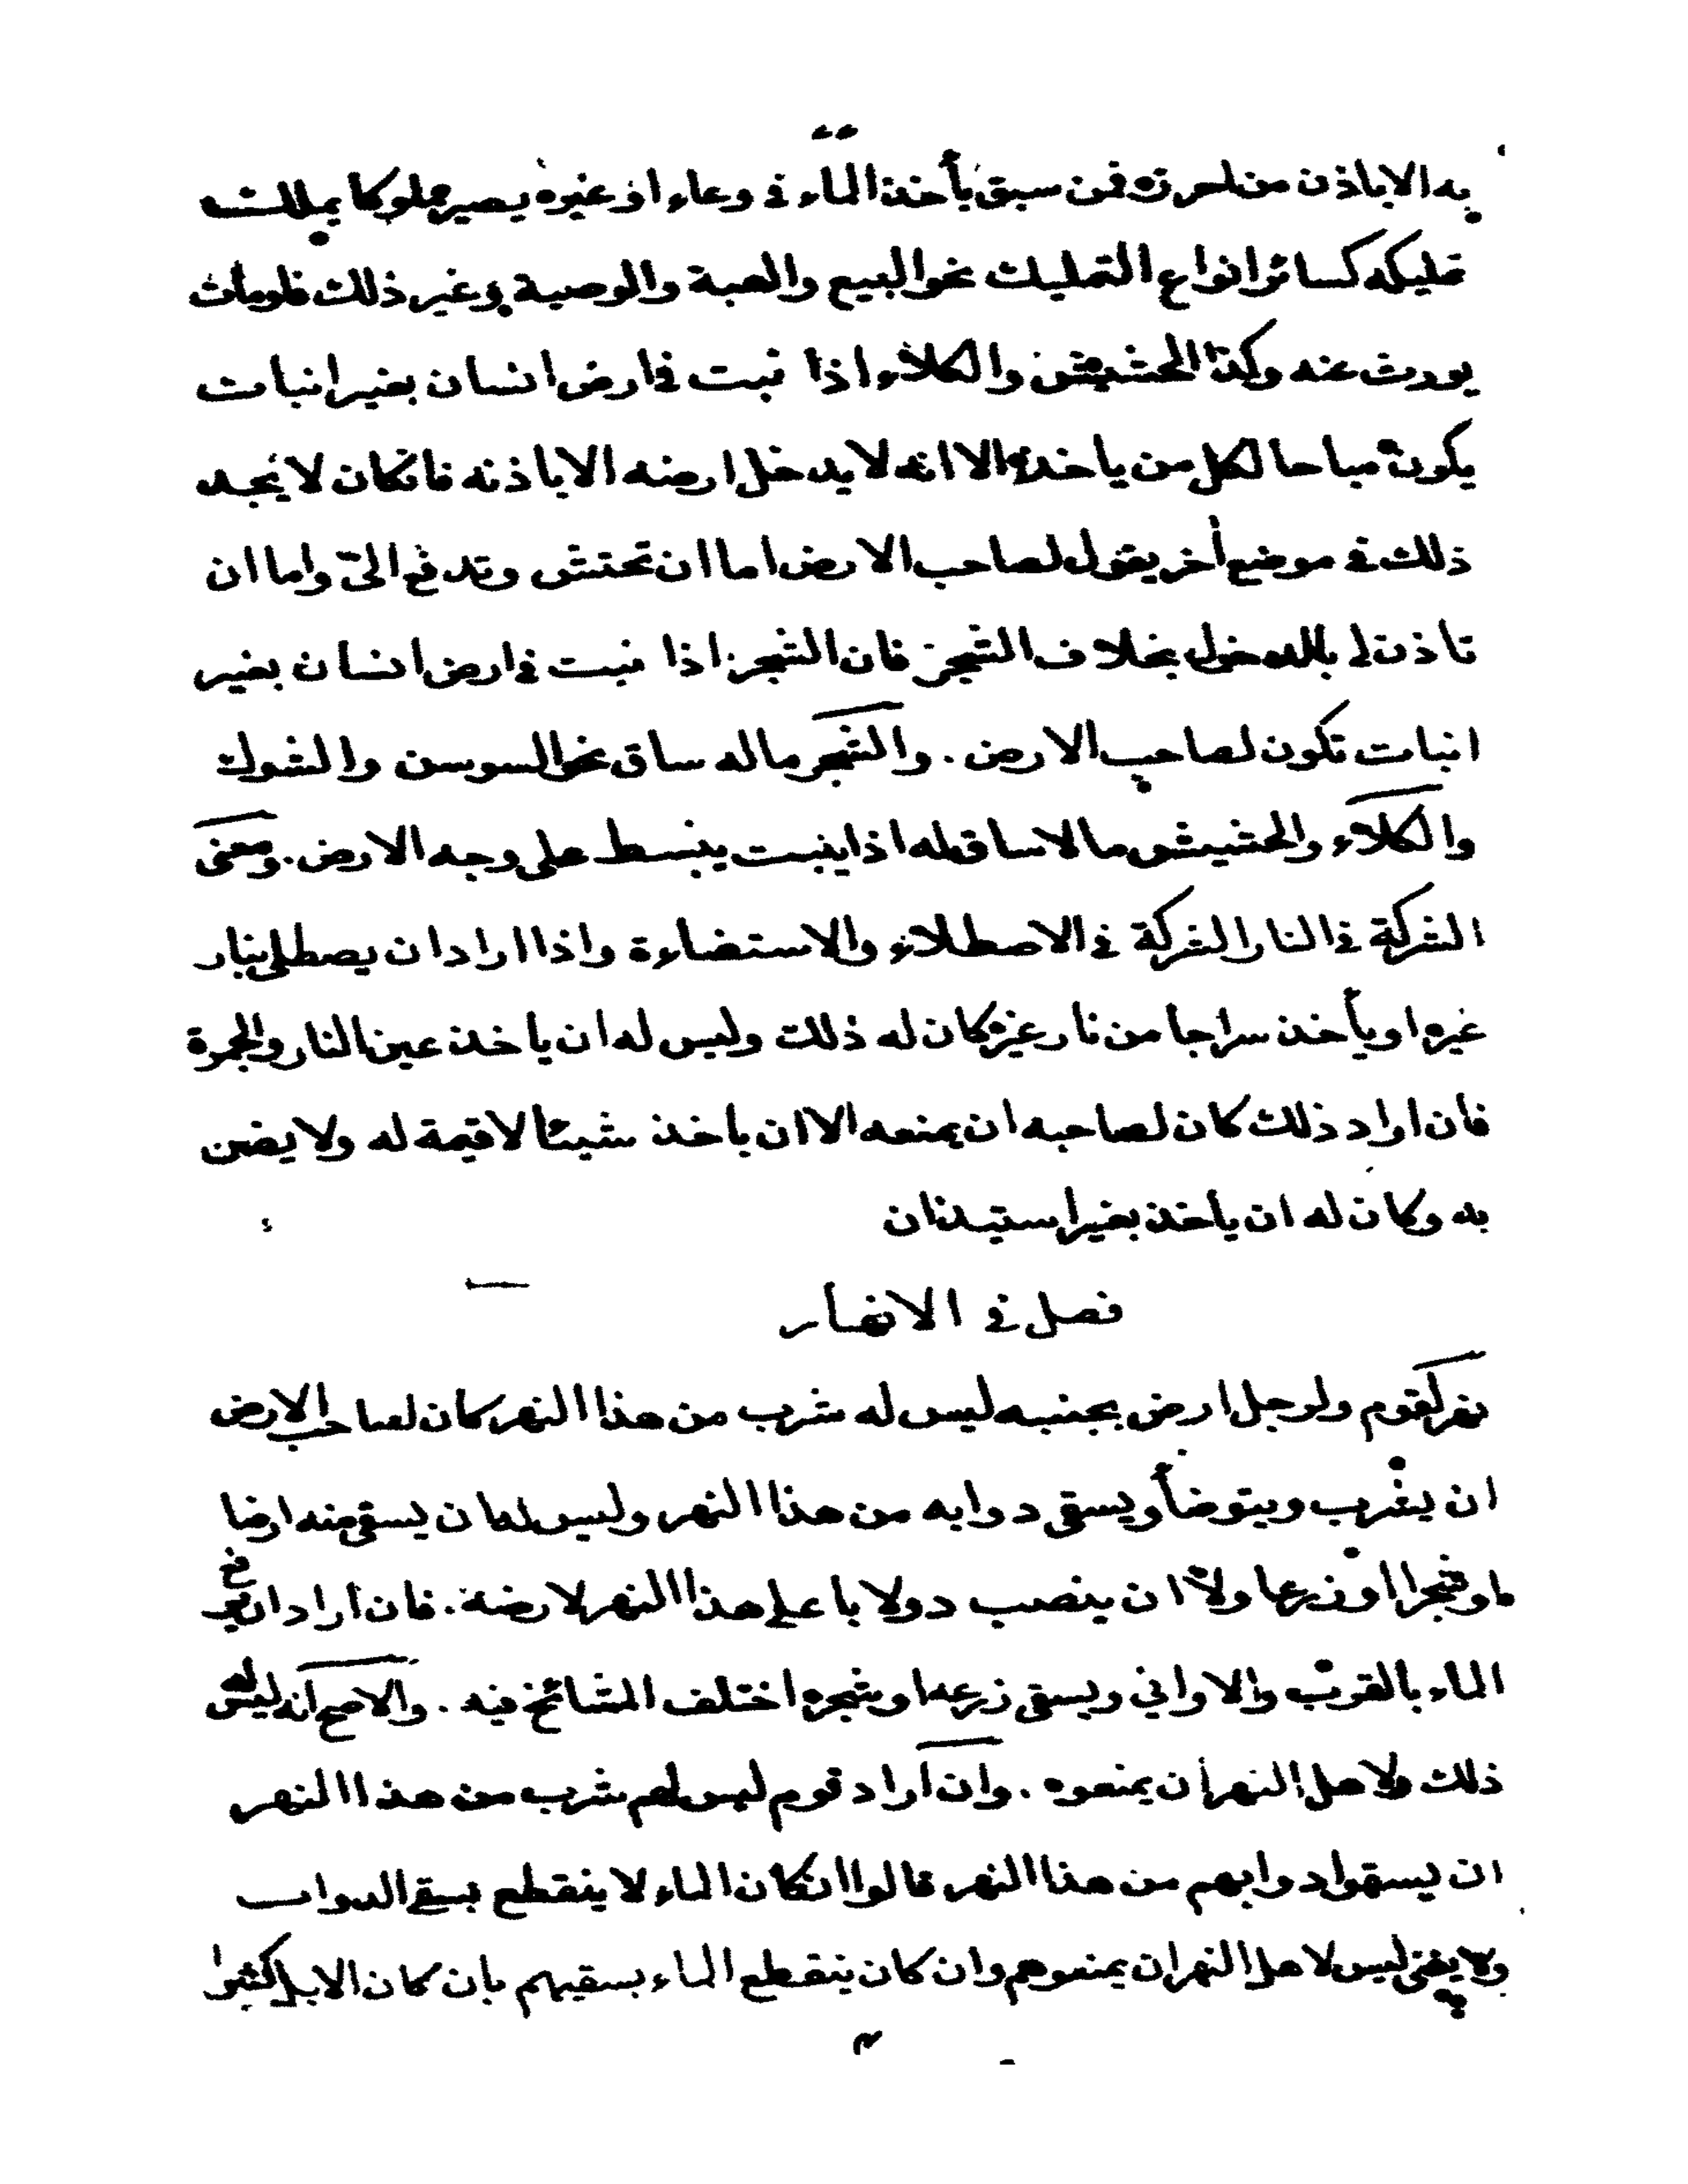 به الا باذن من احرزه فمن سبق بأخذ الماء في وعاء او غيره يصير مملوكا يملك
تمليكه كسائر انواع التمليك نحو البيع والهبة والوصية وغير ذلك فلومات
يورث عنه وكذا الحشيش والكلاء اذا نبت في ارض انسان بغير انبات
يكون مباحا لكل من ياخذه الا انه لا يدخل ارضه الا باذنه فانكان لا يجد
ذلك في موضع أخر يقول لصاحب الارض اما ان تحتش وتدفع الىّ واما ان
تاذن لى بالدخول بخلاف الشجر فان الشجر اذا نبت في ارض انسان بغير
انبات تكون لصاحب الارض . والشجر ما له ساق نحو السوسن والشوك
والكلاء والحشيش ما لا ساق له اذا ينبت ينبسط على وجه الارض . ومعنى
الشركة في النار الشركة في الاصطلاء والاستضاءة واذا اراد ان يصطلى بنار
غيره او يأخذ سراجا من نار غيره كان له ذلك وليس له ان ياخذ عين النار والجمرة
فان اراد ذلك كان لصاحبه ان يمنعه الا ان ياخذ شيئا لا قيمة له ولا يضن
به وكان له ان يأخذ بغير استيذان
فصل في الانهار
نهر لقوم ولرجل ارض بجنبه ليس له شرب من هذا النهر كان لصاحب الارض
ان يشرب ويتوضأ ويسقى دوابه من هذا النهر وليس له ان يسقى منه ارضا
او شجرا او زرعا ولا ان ينصب دولابا على هذا النهر لارضه . فان اراد ان يرفع
الماء بالقرب والاواني ويسقى زرعه او شجره اختلف المشائخ فيه . والاصح انه ليس له
ذلك ولاهل النهر ان يمنعوه . وان اراد قوم ليس لهم شرب من هذا النهر
ان يسقوا دوابهم من هذا النهر قالوا انكان الماء لا ينقطع بسقى الدواب
ولا يفنى ليس لاهل النهر ان يمنعوهم وان كان ينقطع الماء بسقيهم بان كان الابل كثيرا